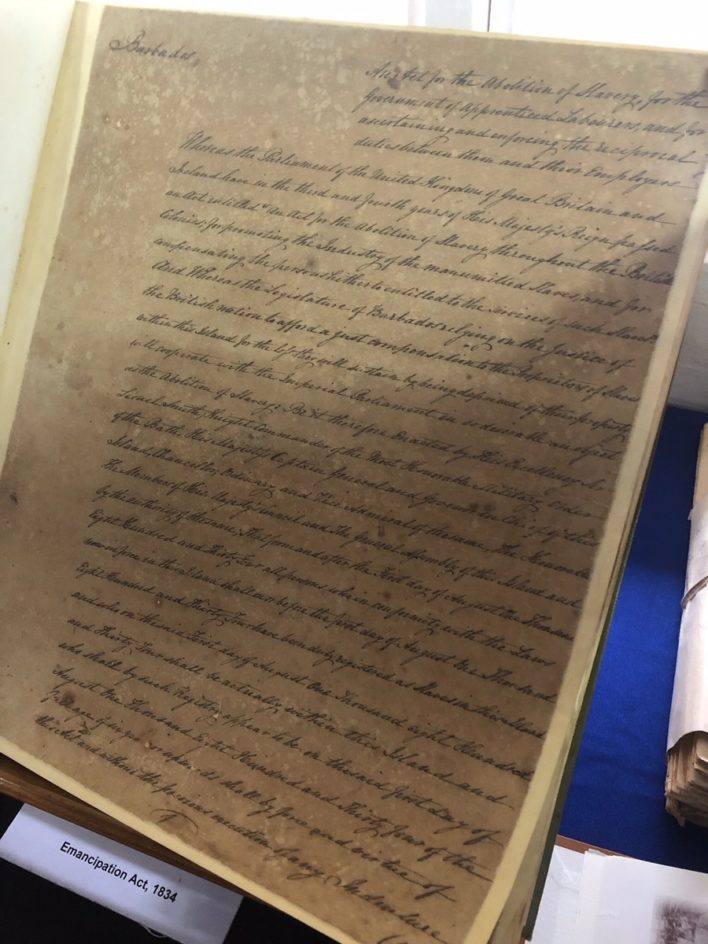 Barbados,
An Act for the Abolition of Slavery, for the
Government of Apprenticed Labourers, and for
ascertaining and enforcing the reciprocal
duties between them and their Employers
Whereas the Parliament of the United Kingdom of Great Britain and
Ireland have in the third and fourth years of His Majesty's Reign passed
an Act entitled "An Act for the Abolition of Slavery throughout the British
Colonies; for promoting the Industry of the manumitted Slaves; and for
compensating the persons hitherto entitled to the services of such Slaves
And Whereas the Legislature of Barbados relying on the Justice of
the British nation to afford a just compensation to the Proprietors of Slaves
within this Island for the loss they will sustain by being deprived of their property
will cooperate with the Imperial Parliament in so desirable an object
as the Abolition of Slavery; Be it therefore Enacted by His Excellency Sir
Lionel Smith, Knight Commander of the Most Honorable Military Order
of the Bath, His Majesty's Captain General and Governor in chief of this
Island, Chancellor, Ordinary and Vice Admiral of the same, The Honorable
The Members of His Majesty's Council and the General Assembly of this Island and
by the authority of the same, That from and after the First day of August One Thousand
Eight Hundred and Thirty Four all persons who in conformity with the Laws
now in force in this Island shall on or before the first day of August One Thousand
Eight Hundred and Thirty Four have been duly registered as Slaves in this Island
and who on the said First day of August One Thousand eight Hundred
and Thirty Four shall be actually within this Island and
who shall by such Registry appear to be on the said first day of
August One Thousand Eight Hundred and Thirty Four of the
full age of six years or upwards shall by force and virtue of
this Act and without the previous execution of any Indenture
Emancipation Act, 1834